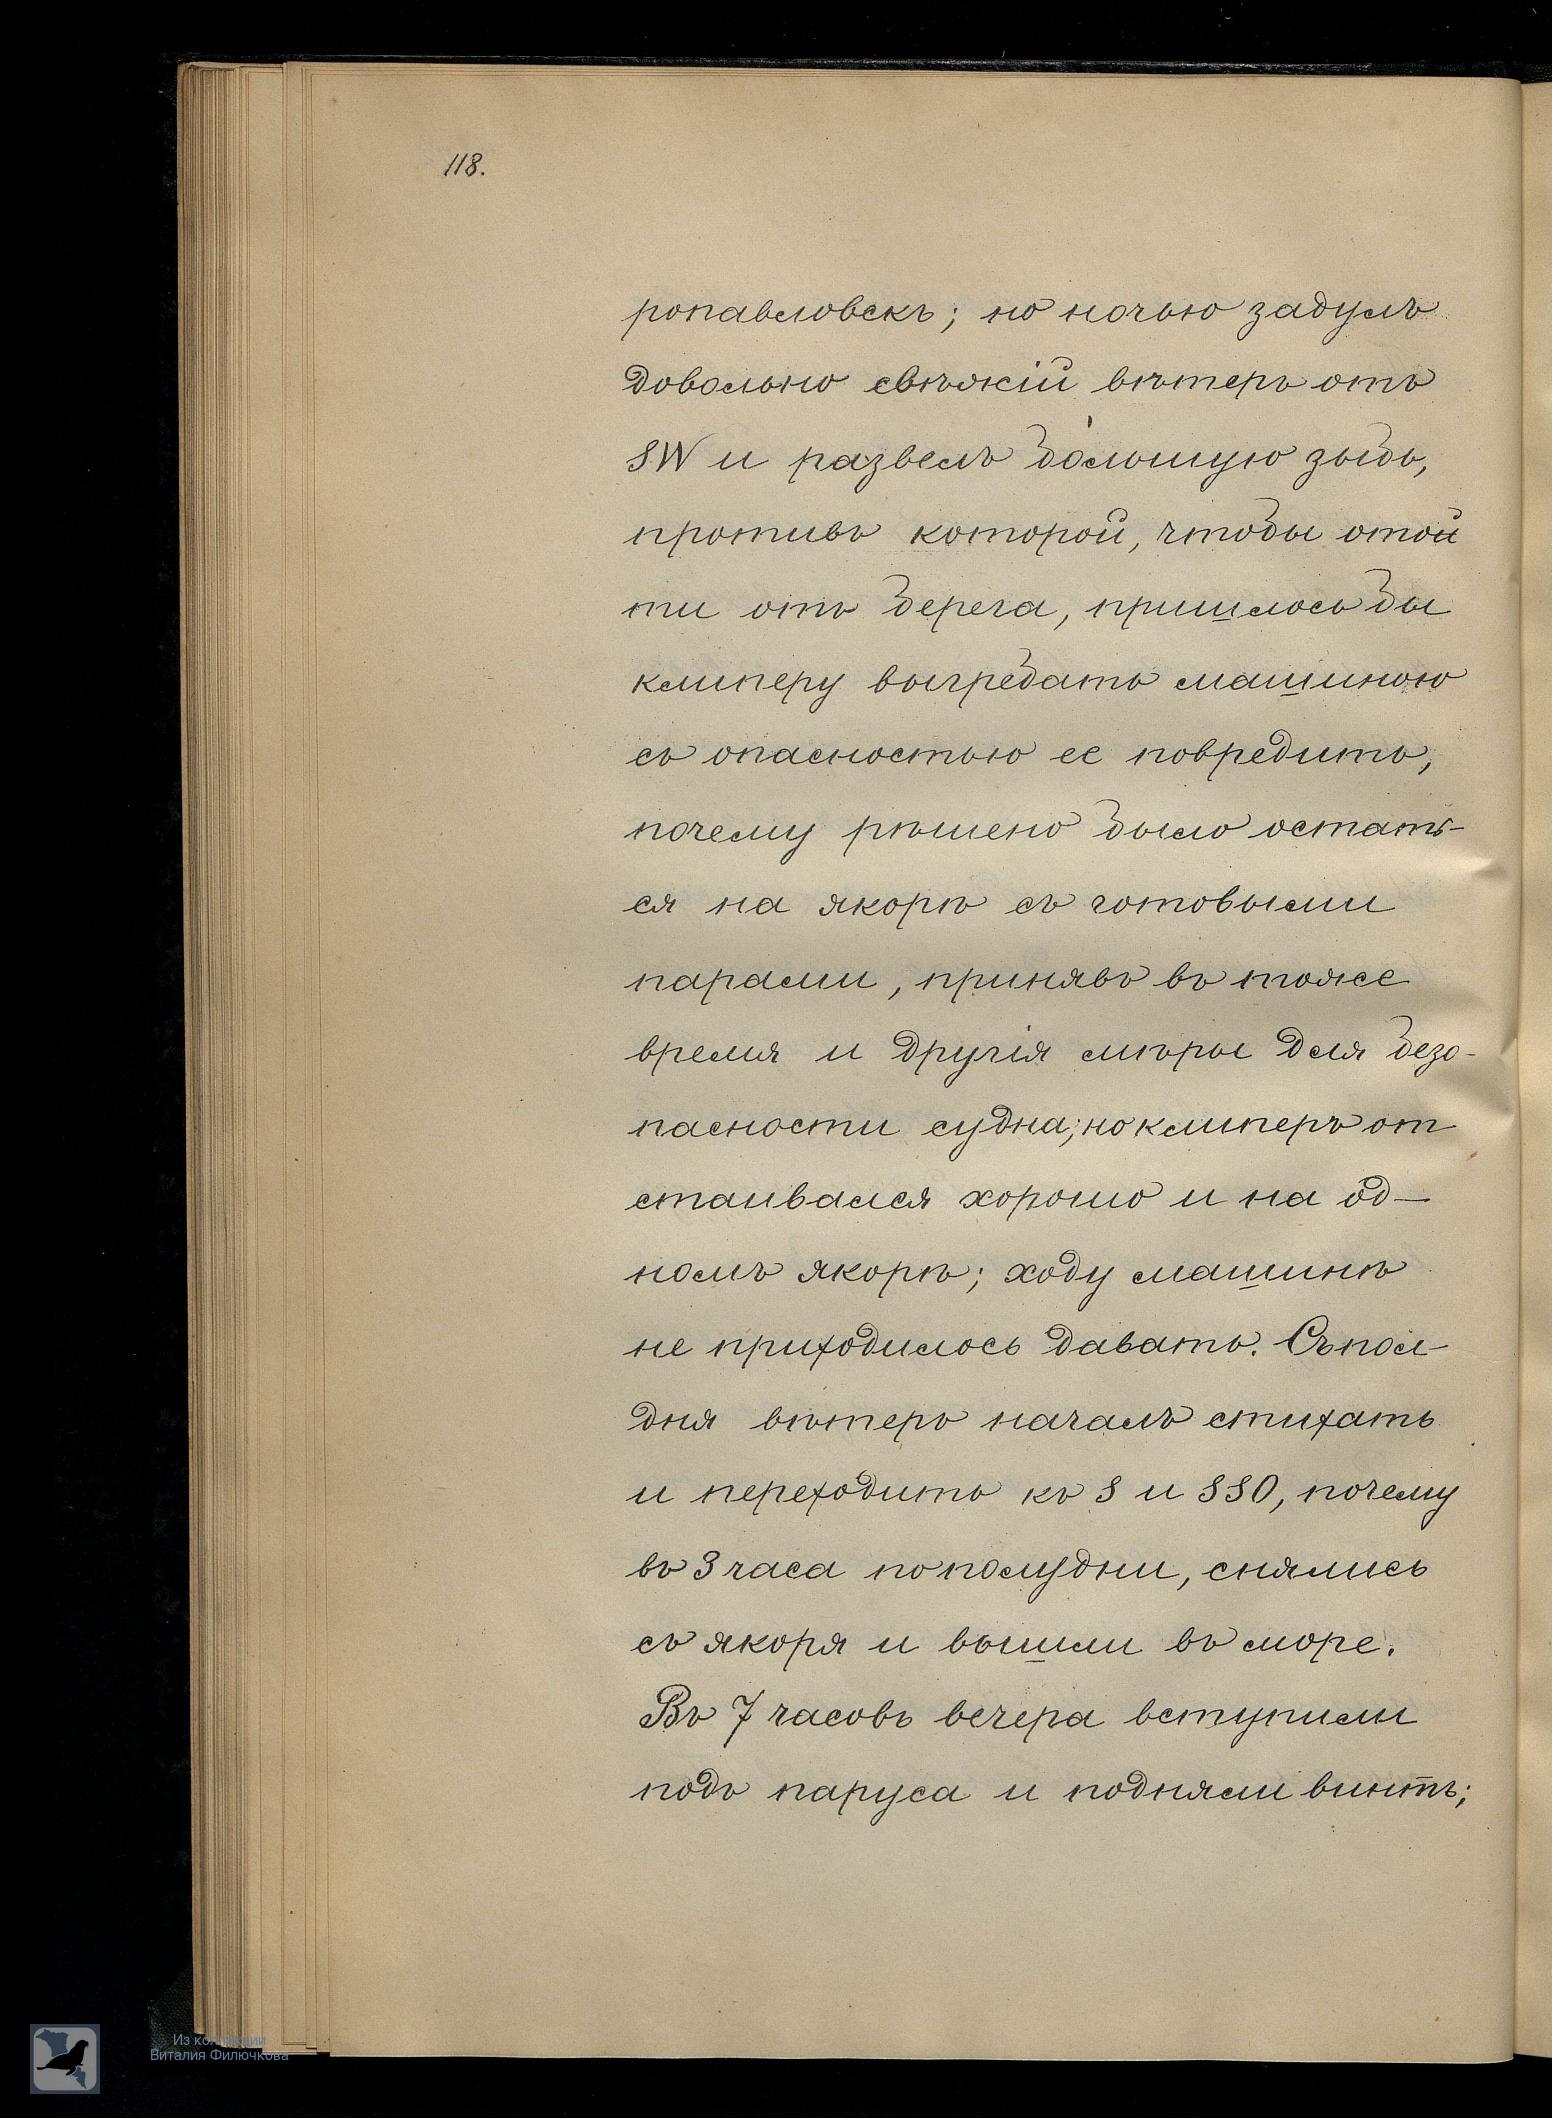 118.
ропавловскъ; но ночью задулъ
довольно свѣжій вѣтеръ отъ
SW и развелъ бо́льшую зыбь,
противъ которой, чтобы отой
ти отъ берега, пришлось бы
клиперу выгребать машиною
съ опасностью ее повредить,
почему рѣшено было остать-
ся на якорѣ съ готовыми
парами, принявъ въ тоже
время и другія мѣры для безо-
пасности судна; но клиперъ от
стаивался хорошо и на од-
номъ якорѣ; ходу машинѣ
не приходилось давать. Съ пол-
дня вѣтеръ началъ стихать
и переходить къ S и SSO, почему
въ 3 часа по полудни, снялись
съ якоря и вышли въ море.
Въ 7 часовъ вечера вступили
подъ паруса и подняли винтъ;
Из коллекции
Виталия Филючкова